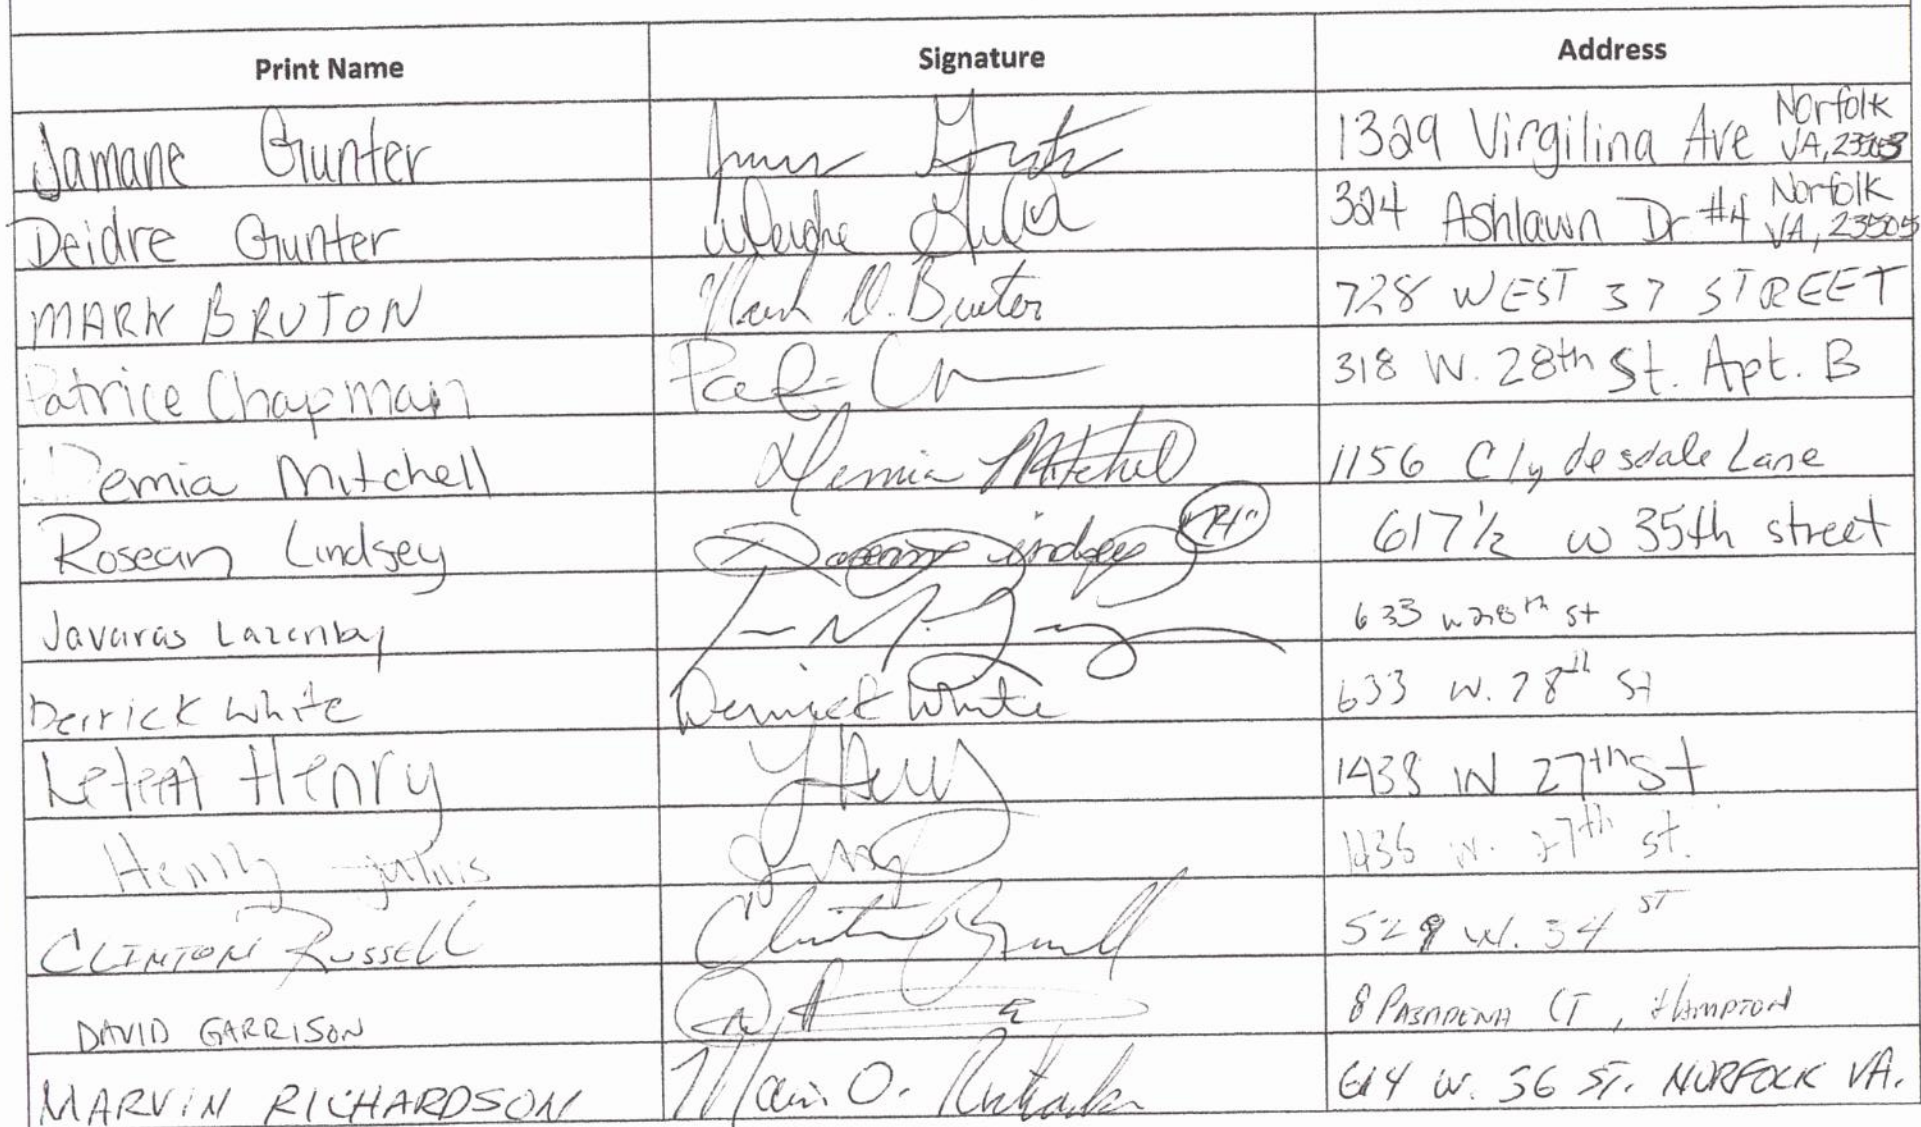 Print Name Signature Address
Jamane Gunter 1329 Virgilina Ave Norfolk VA, 23503
Deidre Gunter 324 Ashlawn Dr #4 Norfolk VA, 23505
MARK BRUTON Mark D. Bruton 728 WEST 37 STREET
Patrice Chapman 318 W. 28th St. Apt. B
Demia Mitchell Demia Mitchell 1156 Clydesdale Lane
Roseann Lindsey Roseann Lindsey 617 1/2 W 35th street
Javaras Lazenby 633 W 28th St
Derrick White Derrick White 633 W. 28th St
Henry 1438 W 27th St
Henry Julius 1436 W. 27th St.
CLINTON RUSSELL Clinton Russell 529 W. 34 ST
DAVID GARRISON 8 PASADENA CT, HAMPTON
MARVIN RICHARDSON 614 W. 36 ST. NORFOLK VA.